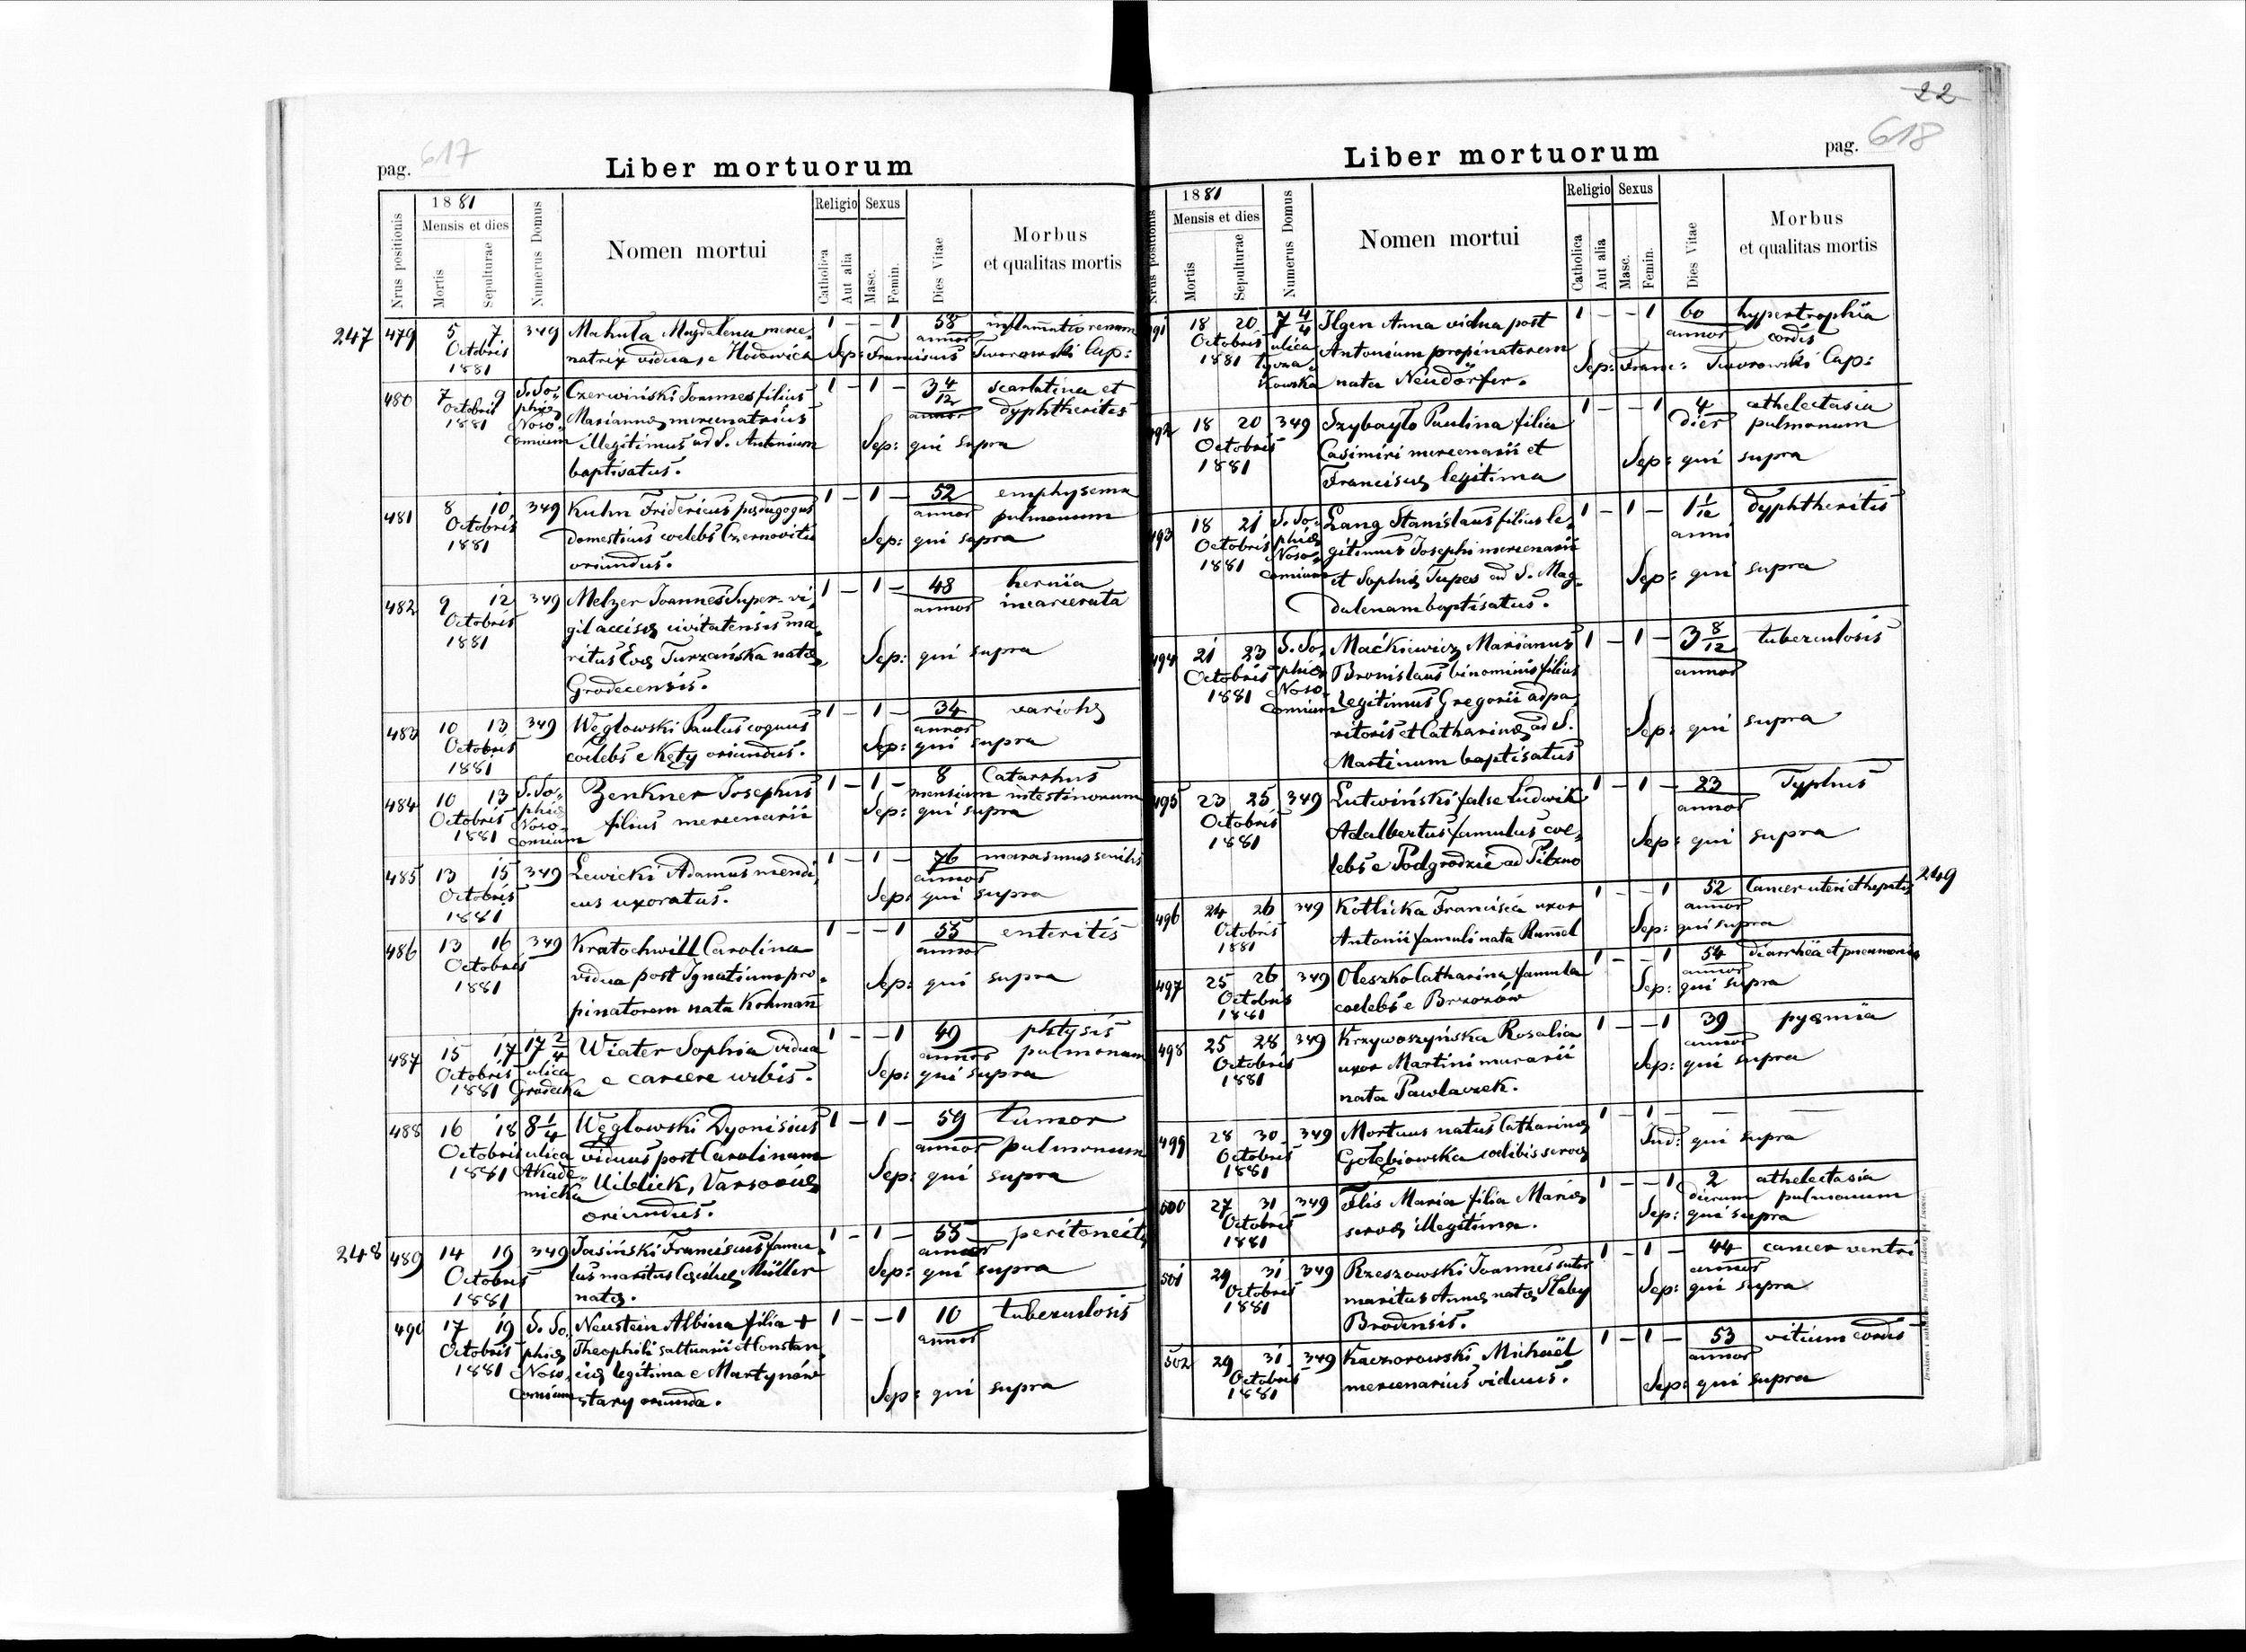 22
pag. 617
Liber mortuorum
Nrus positionis
1881
Mensis et dies
Mortis
Sepulturae
Numerus Domus
Nomen mortui
Religio
Catholica
Aut alia
Sexus
Masc.
Femin.
Dies Vitae
Morbus
et qualitas mortis
247 479 5 7 349 Mahuta Magdalena merce- 1 – – 1 58 inflammatio renum
Octobris natrix vidua, e Hodowica annor
1881 Sep: Franciscus Tworowski Cap:
480 7 9 S. So- Czerwiński Joannes filius 1 – 1 – 3 4/12 scarlatina et
Octobris phiæ Mariannæ mercenatrius annor dyphtherites
1881 Noso- illegitimus ad S. Antonium Sep: qui supra
comium baptisatus.
481 8 10 349 Kuhn Fridericus pædagogus 1 – 1 – 52 emphysema
Octobris domesticus coelebs Czernovitis annor pulmonum
1881 oriundus. Sep: qui supra
482 9 12 349 Melzer Joannes Super-vi- 1 – 1 – 48 hernia
Octobris gil accisæ civitatensis ma- annor incarcerata
1881 ritus Evæ Turzańska natæ, Sep: qui supra
Grodecensis.
483 10 13 349 Węglowski Paulus coquus 1 – 1 – 34 variola
Octobris coelebs e Kęty oriundus. annor
1881 Sep: qui supra
484 10 13 S. So- Zenkner Josephus 1 – 1 – 8 Catarrhus
Octobris phiæ filius mercenarii mensium intestinorum
1881 Noso- Sep: qui supra
comium
485 13 15 349 Lewicki Adamus mendi- 1 – 1 – 76 marasmus senilis
Octobris cus uxoratus. annor
1881 Sep: qui supra
486 13 16 349 Kratochwill Carolina 1 – – 1 55 enteritis
Octobris vidua post Ignatium pro- annor
1881 pinatorem nata Kohmann Sep: qui supra
487 15 17 17 2/4 Wiater Sophia vidua 1 – – 1 49 phtysis
Octobris ulica e carcere urbis. annor pulmonum
1881 Gródecka Sep: qui supra
488 16 18 8 1/4 Węglowski Dyonisius 1 – 1 – 59 tumor
Octobris ulica viduus post Carolinam annor pulmonum
1881 Akade- Uiblick, Varsoviæ Sep: qui supra
micka oriundus.
248 489 14 19 349 Jasiński Franciscus famu- 1 – 1 – 55 peritoneitis
Octobris lus maritus Cæciliæ Müller annor
1881 natæ. Sep: qui supra
490 17 19 S. So- Neustein Albina filia + 1 – – 1 10 tuberculosis
Octobris phiæ Theophili saltuarii et Constan- annor
1881 Noso- ciæ legitima e Martynów Sep: qui supra
comium stary oriunda.
pag. 618
Liber mortuorum
Nrus positionis
1881
Mensis et dies
Mortis
Sepulturae
Numerus Domus
Nomen mortui
Religio
Catholica
Aut alia
Sexus
Masc.
Femin.
Dies Vitae
Morbus
et qualitas mortis
491 18 20 7 4/4 Ilgen Anna vidua post 1 – – 1 60 hypertrophia
Octobris ulica Antonium propinatorem annor cordis
1881 Łycza- nata Neudörfer. Sep: Franc: Tworowski Cap:
kowska
492 18 20 349 Szybayło Paulina filia 1 – – 1 4 athelectasia
Octobris Casimiri mercenarii et dier pulmonum
1881 Franciscæ legitima Sep: qui supra
493 18 21 S. So- Lang Stanislaus filius le- 1 – 1 – 1 1/12 dyphtheritis
Octobris phiæ gitimus Josephi mercenarii anni
1881 Noso- et Sophiæ Tupes ad S. Mag- Sep: qui supra
comium dalenam baptisatus.
494 21 23 S. So- Maćkiewicz Marianus 1 – 1 – 3 8/12 tuberculosis
Octobris phiæ Bronislaus binominis filius annor
1881 Noso- legitimus Gregorii adpa-
comium ritoris et Catharinæ ad S. Sep: qui supra
Martinum baptisatus
495 23 25 349 Lutwiński false Ludwik 1 – 1 – 23 Typhus
Octobris Adalbertus famulus coe- annor
1881 lebs e Podgrodzie ad Pilzno Sep: qui supra
496 24 26 349 Kotlicka Francisca uxor 1 – – 1 52 Cancer uteri et hepatis 249
Octobris Antonii famuli nata Rummel annor
1881 Sep: qui supra
497 25 26 349 Oleszko Catharina famula 1 – – 1 54 diarrhëa et pneumonia
Octobris coelebs e Brzozów annor
1881 Sep: qui supra
498 25 28 349 Krzywoszyńska Rosalia 1 – – 1 39 pyæmia
Octobris uxor Martini murarii annor
1881 nata Pawlaczek. Sep: qui supra
499 28 30 349 Mortuus natus Catharinæ 1 – 1 – — —
Octobris Gołębiowska coelibis servæ Sud: qui supra
1881
500 27 31 349 Flis Maria filia Mariæ 1 – – 1 2 athelectasia
Octobris servæ illegitima. dierum pulmonum
1881 Sep: qui supra
501 29 31 349 Rzeszowski Joannes sutor 1 – 1 – 44 cancer ventri
Octobris maritus Annæ natæ Słaby annor
1881 Brodensis. Sep: qui supra
502 29 31 349 Kaczorowski Michaël 1 – 1 – 53 vitium cordis
Octobris mercenarius viduus. annor
1881 Sep: qui supra